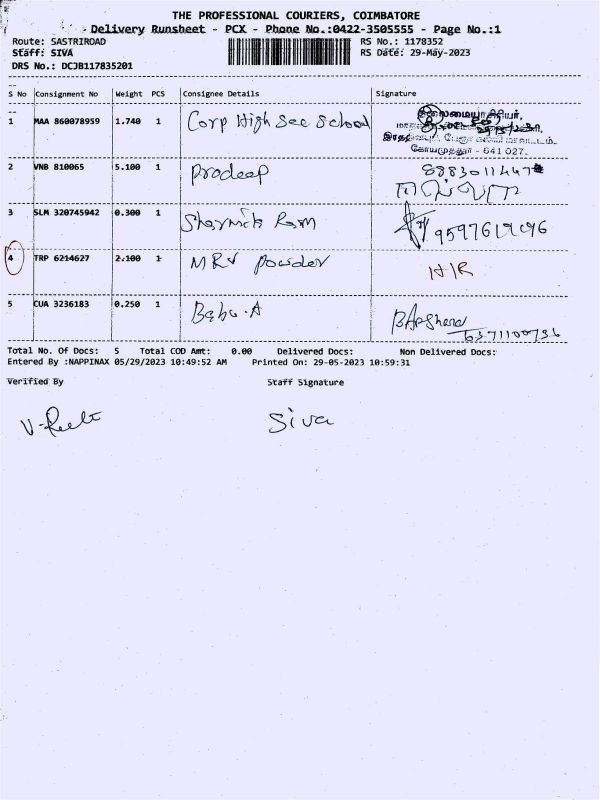 THE PROFESSIONAL COURIERS, COIMBATORE
Delivery Runsheet - PCX - Phone No.:0422-3505555 - Page No.:1
Route: SASTRIROAD RS No.: 1178352
Staff: SIVA RS Date: 29-May-2023
DRS No.: DCJB117835201
S No Consignment No Weight PCS Consignee Details Signature
1 MAA 860078959 1.740 1 Corp High Sec School
கோயமுத்தூர் - 641 027.
2 VNB 810065 5.100 1 Pradeep
3 SLM 320745942 0.300 1 Ram
4 TRP 6214627 2.100 1 MRV powder H/R
5 CUA 3236183 0.250 1 Babu.A
Total No. Of Docs: 5 Total COD Amt: 0.00 Delivered Docs: Non Delivered Docs:
Entered By :NAPPINAX 05/29/2023 10:49:52 AM Printed On: 29-05-2023 10:59:31
Verified By Staff Signature
Siva